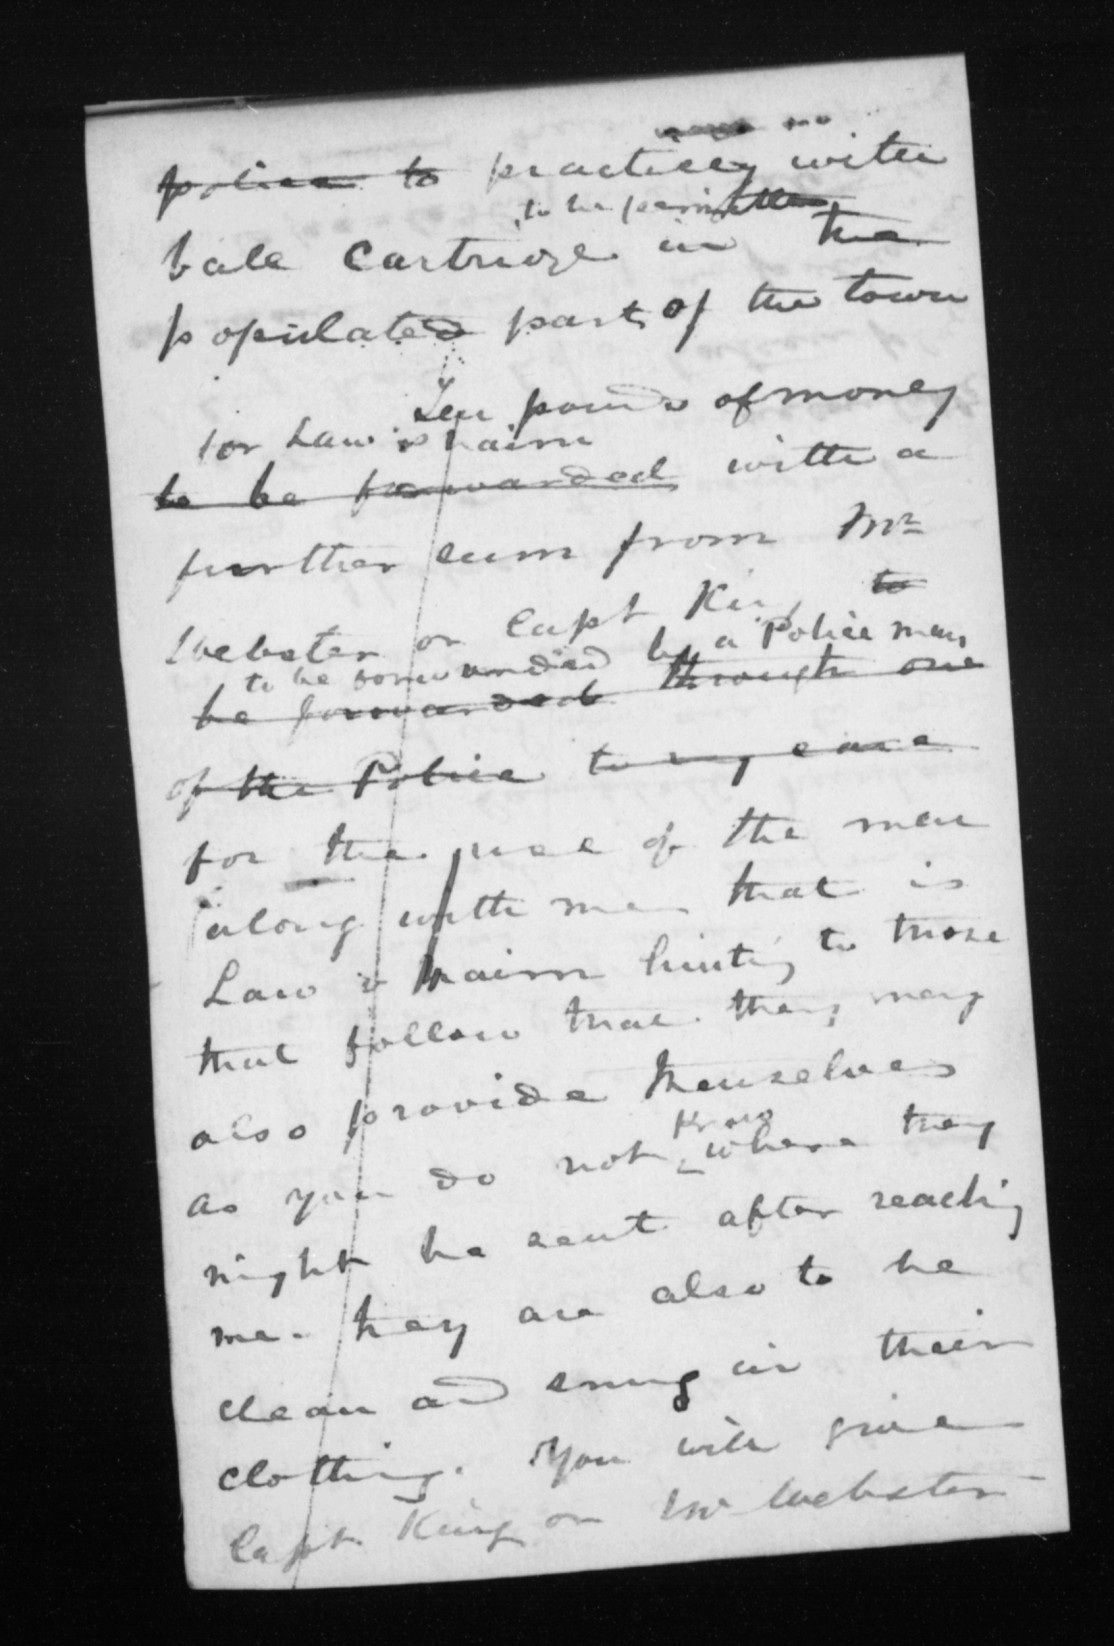 no
police to practicey with
to be permitted
bale Cartridge in the
populated parts of the town
Ten pounds of money
for Law & Nairn
to be forwarded with a
further sum from Mr
Webster or Capt King to
to be forwarded by a Police man
be forwarded through one
of the Police to my care
for the use of the men
along with me that is
Law & Nairn hinting to those
that follow that they may
also provide themselves
know
as you do not where they
might be sent after reaching
me. they are also to be
clean and snug in their
clothing. You will give
Capt. King or Mr Webster